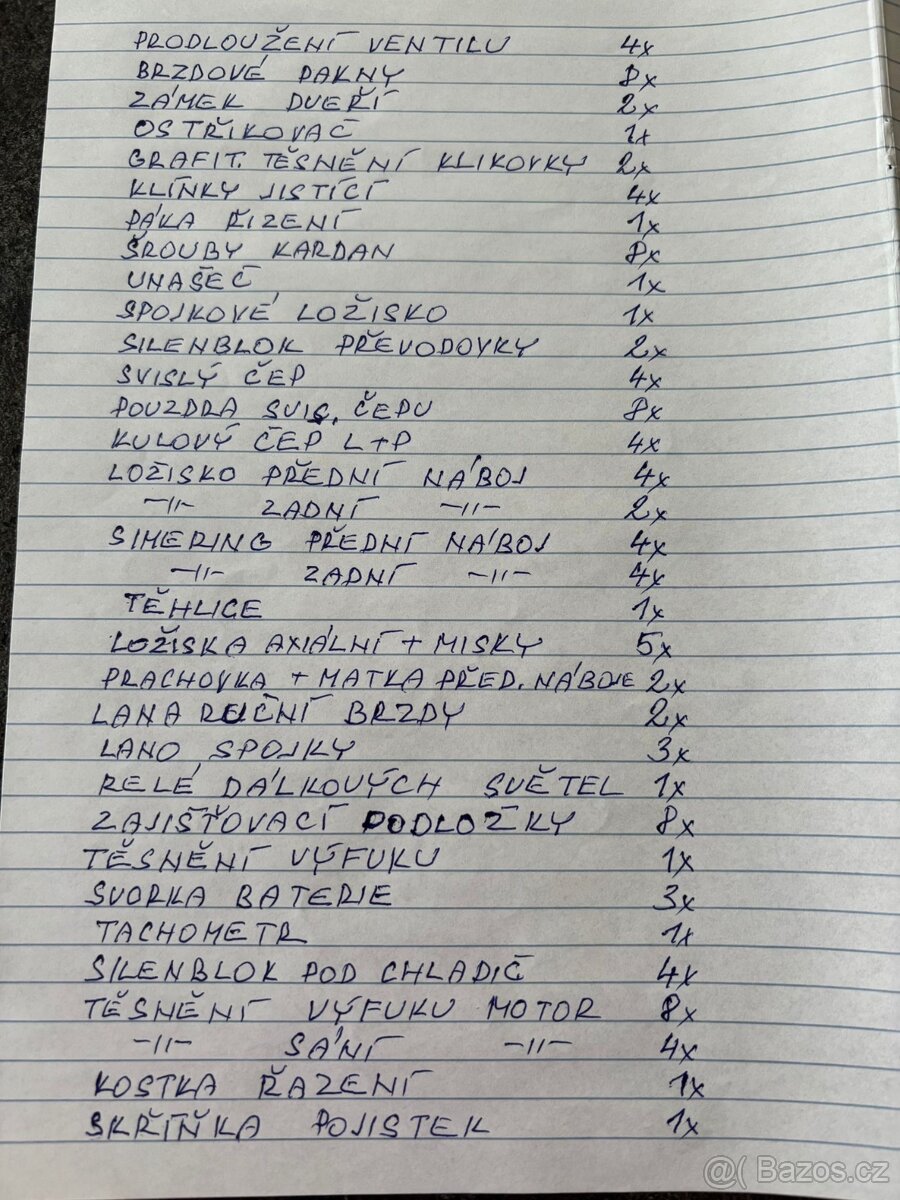 PRODLOUŽENÍ VENTILU 4x
BRZDOVÉ PAKNY 8x
ZÁMEK DVEŘÍ 2x
OSTŘIKOVAČ 1x
GRAFIT. TĚSNĚNÍ KLIKOVKY 2x
KLÍNKY JISTÍCÍ 4x
PÁKA ŘIZENÍ 1x
ŠROUBY KARDAN 8x
UNAŠEČ 1x
SPOJKOVÉ LOŽISKO 1x
SILENBLOK PŘEVODOVKY 2x
SVISLÝ ČEP 4x
POUZDRA SVIS. ČEPU 8x
KULOVÝ ČEP L+P 4x
LOŽISKO PŘEDNÍ NÁBOJ 4x
-//- ZADNÍ -//- 2x
SIMERING PŘEDNÍ NÁBOJ 4x
-//- ZADNÍ -//- 4x
TĚHLICE 1x
LOŽISKA AXIÁLNÍ + MISKY 5x
PRACHOVKA + MATKA PŘED. NÁBOJE 2x
LANA RUČNÍ BRZDY 2x
LANO SPOJKY 3x
RELÉ DÁLKOVÝCH SVĚTEL 1x
ZAJIŠŤOVACÍ PODLOŽKY 8x
TĚSNĚNÍ VÝFUKU 1x
SVORKA BATERIE 3x
TACHOMETR 1x
SILENBLOK POD CHLADIČ 4x
TĚSNĚNÍ VÝFUKU MOTOR 8x
-//- SÁNÍ -//- 4x
KOSTKA ŘAZENÍ 1x
SKŘÍŇKA POJISTEK 1x
@( Bazos.cz